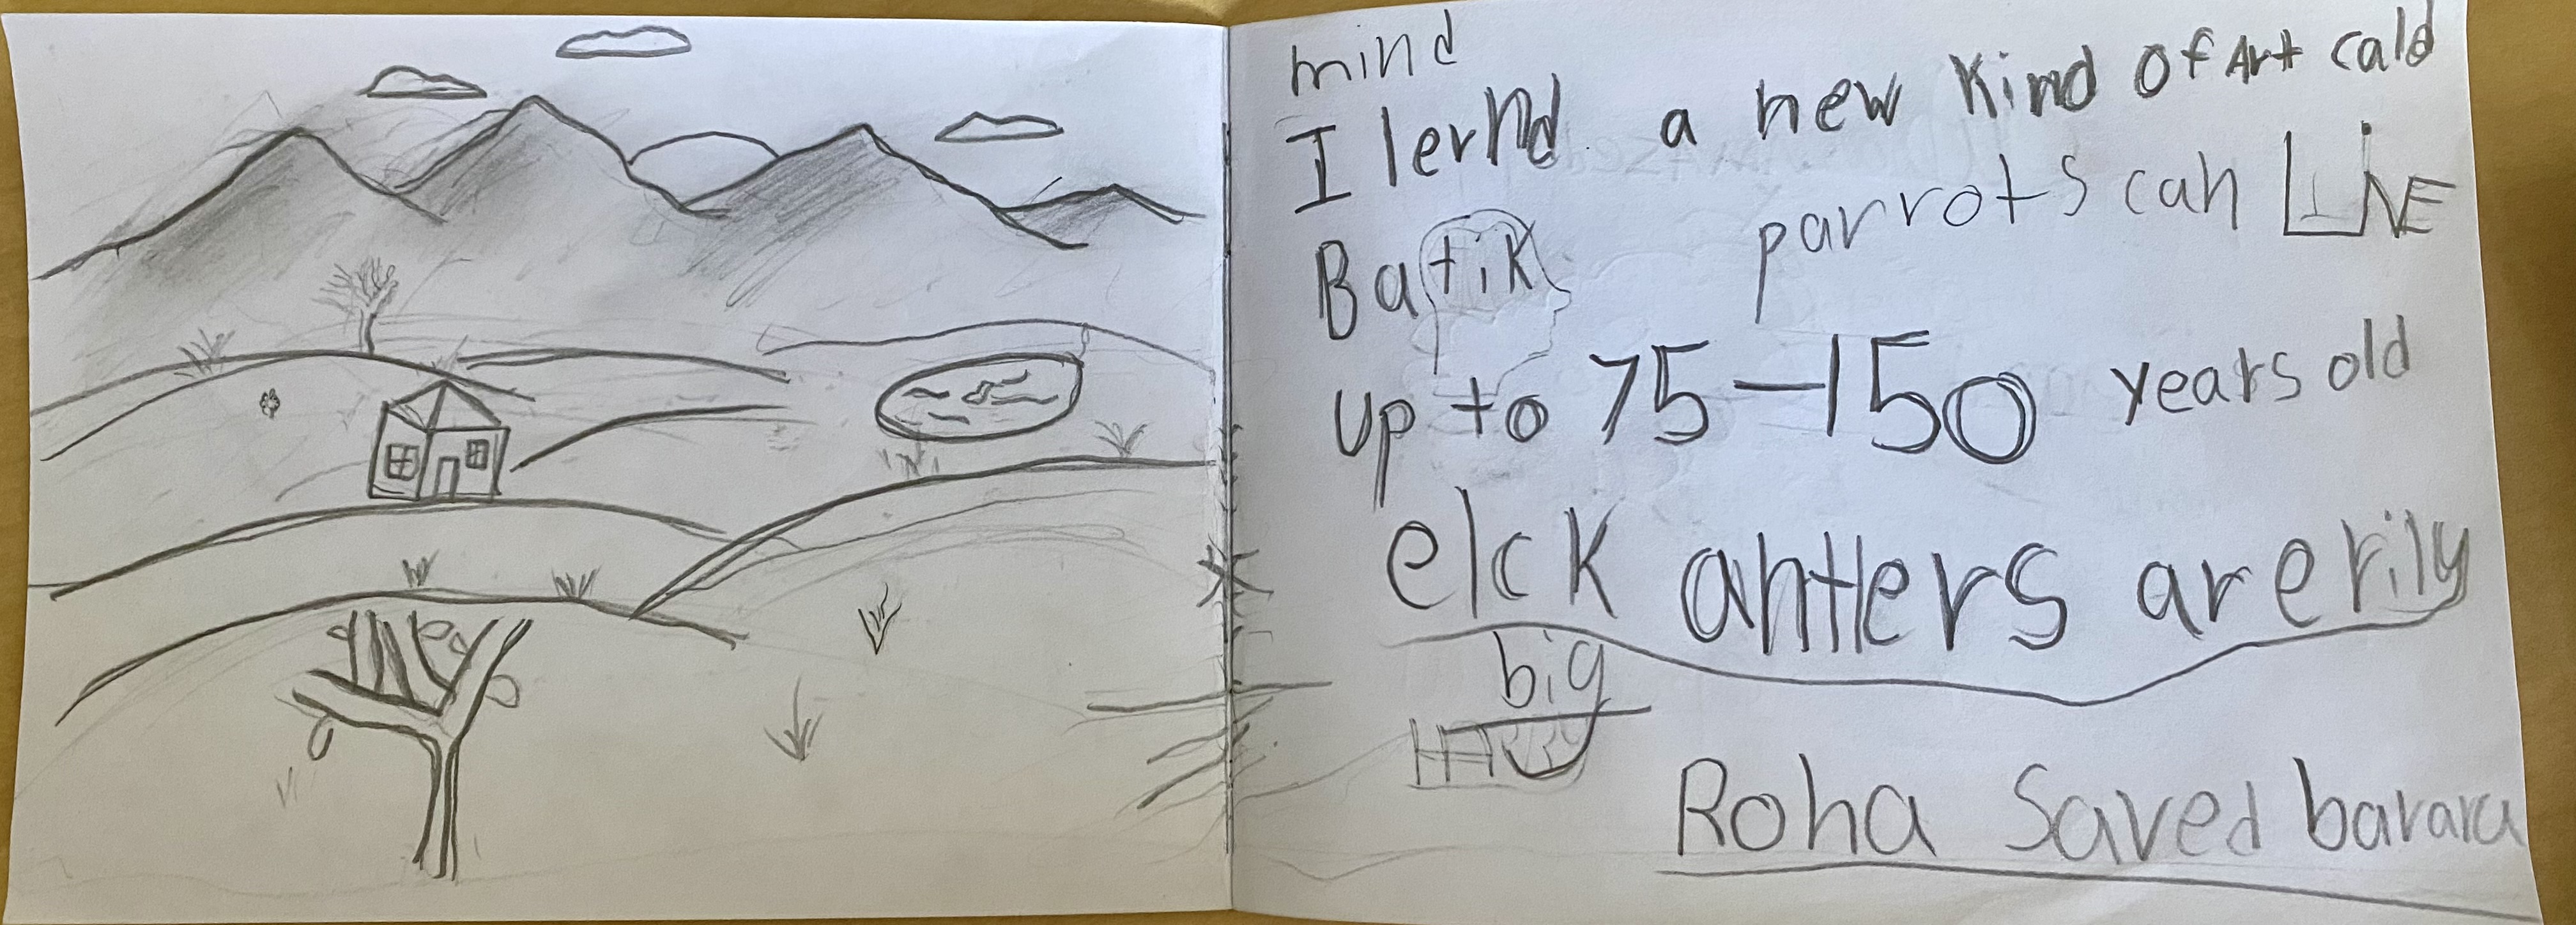 mind
I lernd a new kind of Art cald
Batik
parrots can LiVE
up to 75-150 years old
elck antlers are rily
big
Roha Saved barara